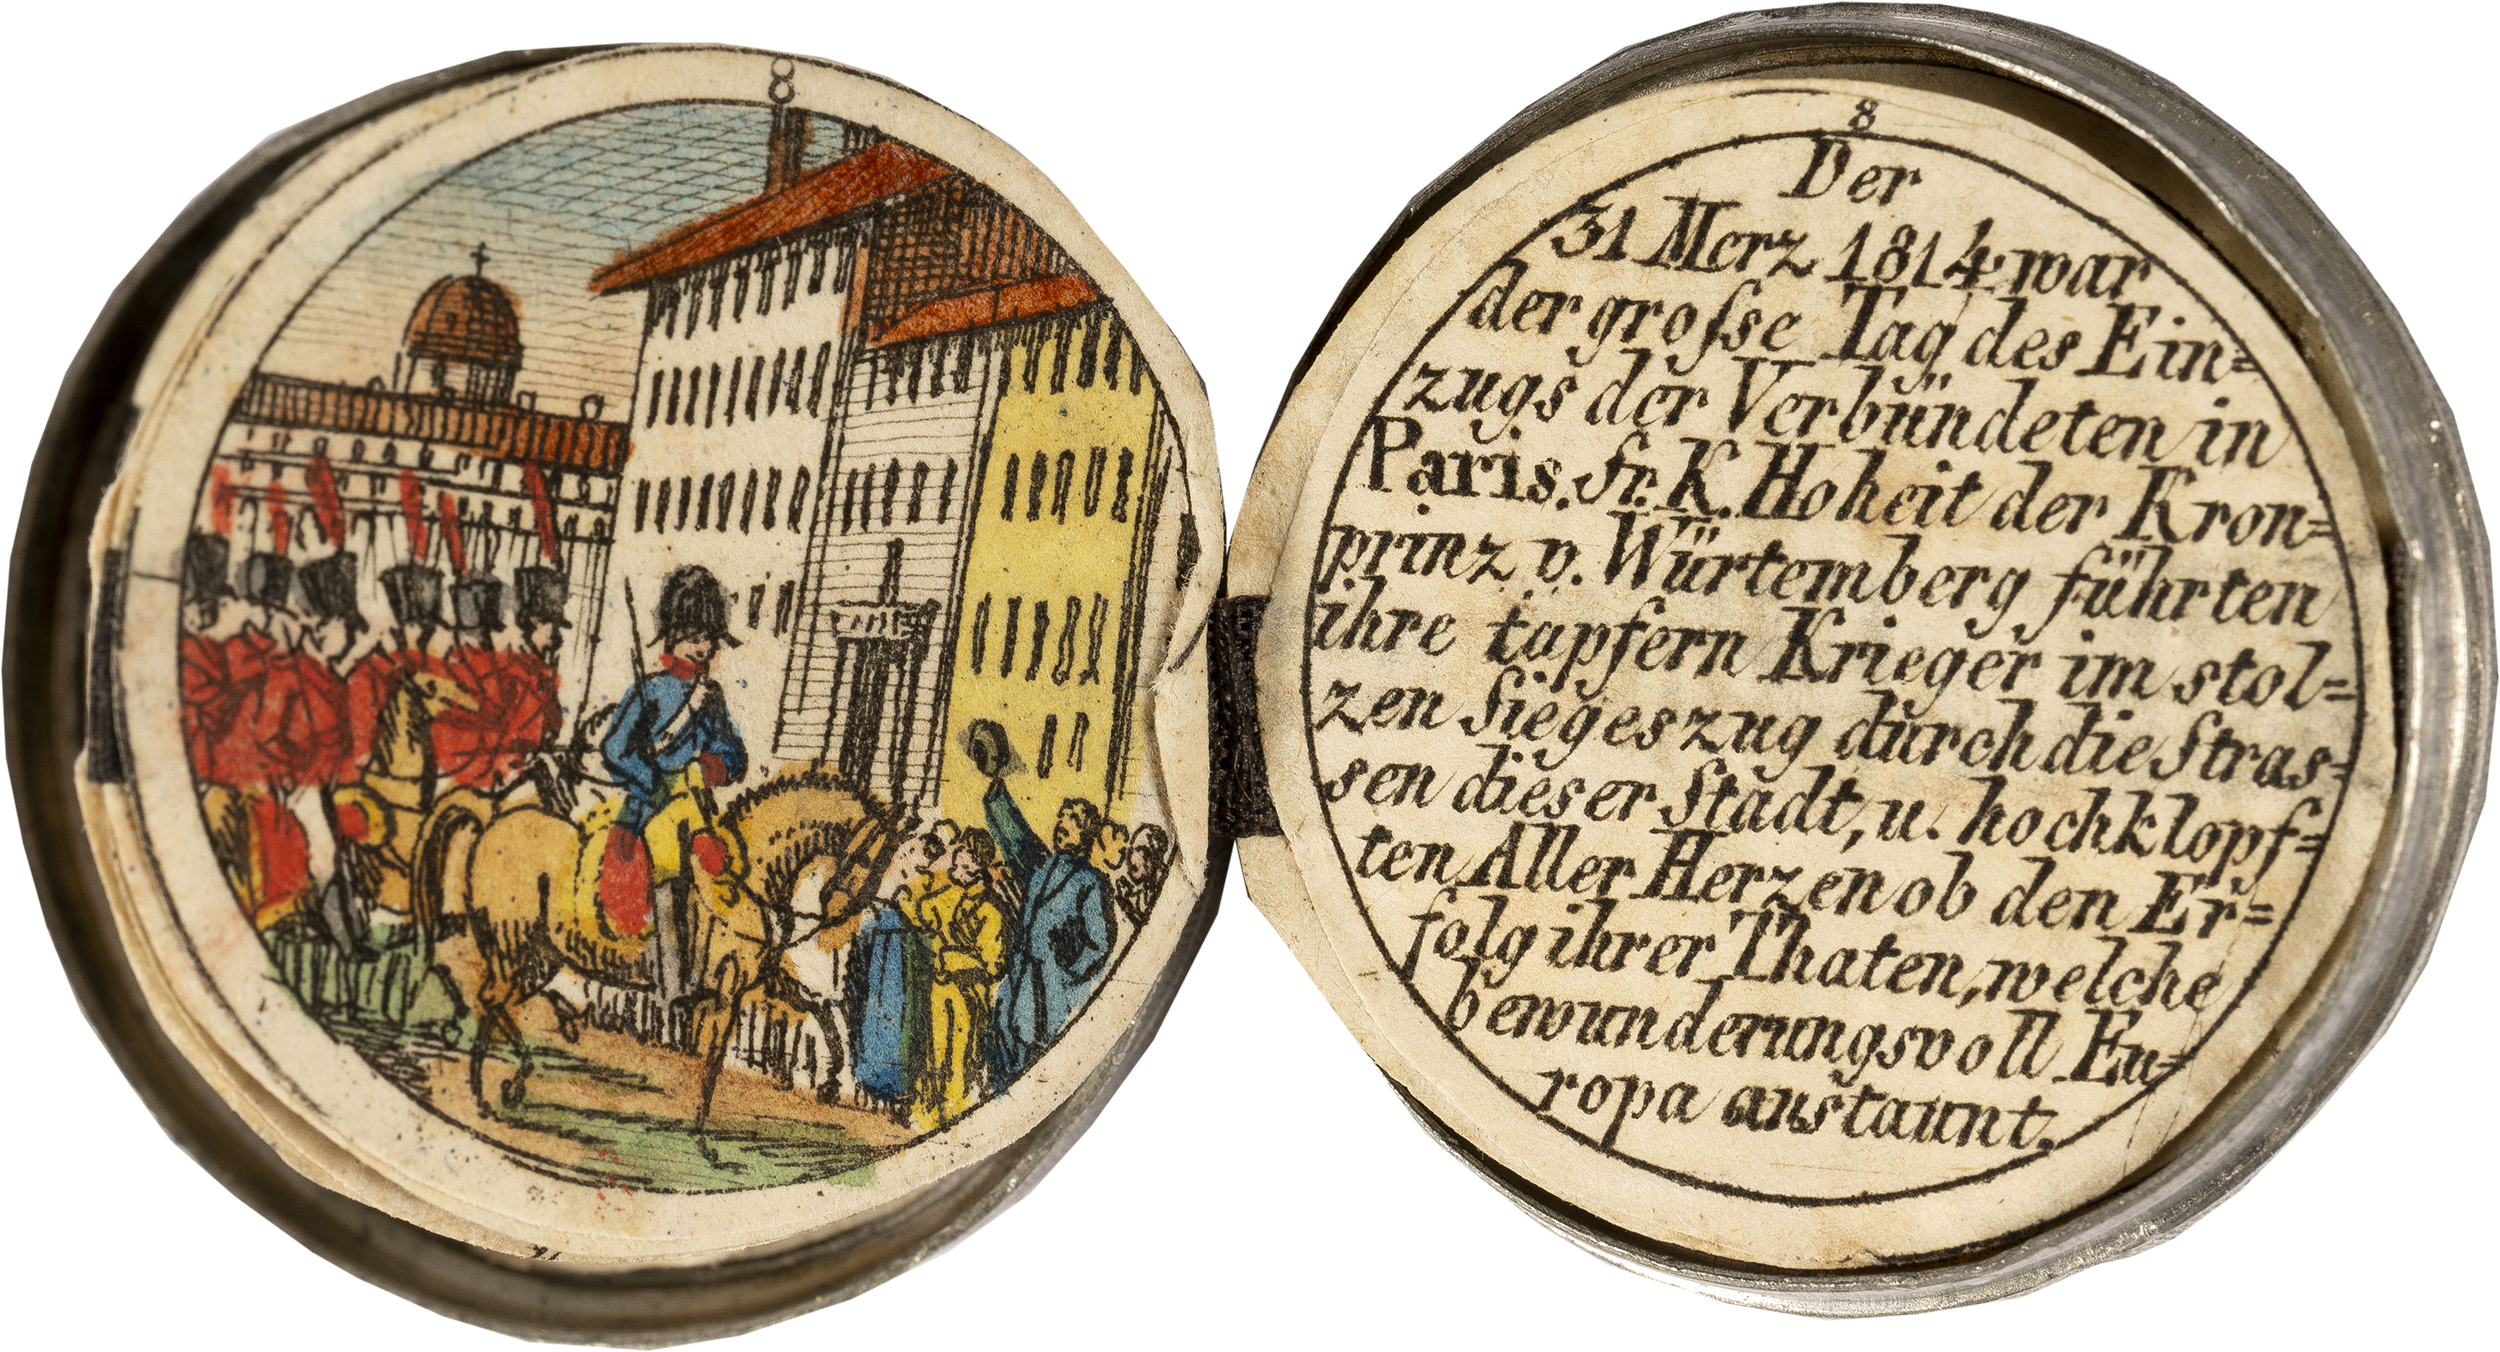 8
8
Der
31 Merz 1814 war
der groſse Tag des Ein=
zugs der Verbündeten in
Paris. Sr. K. Hoheit der Kron=
prinz v. Würtemberg führten
ihre tapfern Krieger im stol=
zen Siegeszug durch die Stras=
sen dieser Stadt, u. hoch klopf=
ten Aller Herzen ob den Er=
folg ihrer Thaten, welche
bewunderungsvoll Eu=
ropa anstaunt.